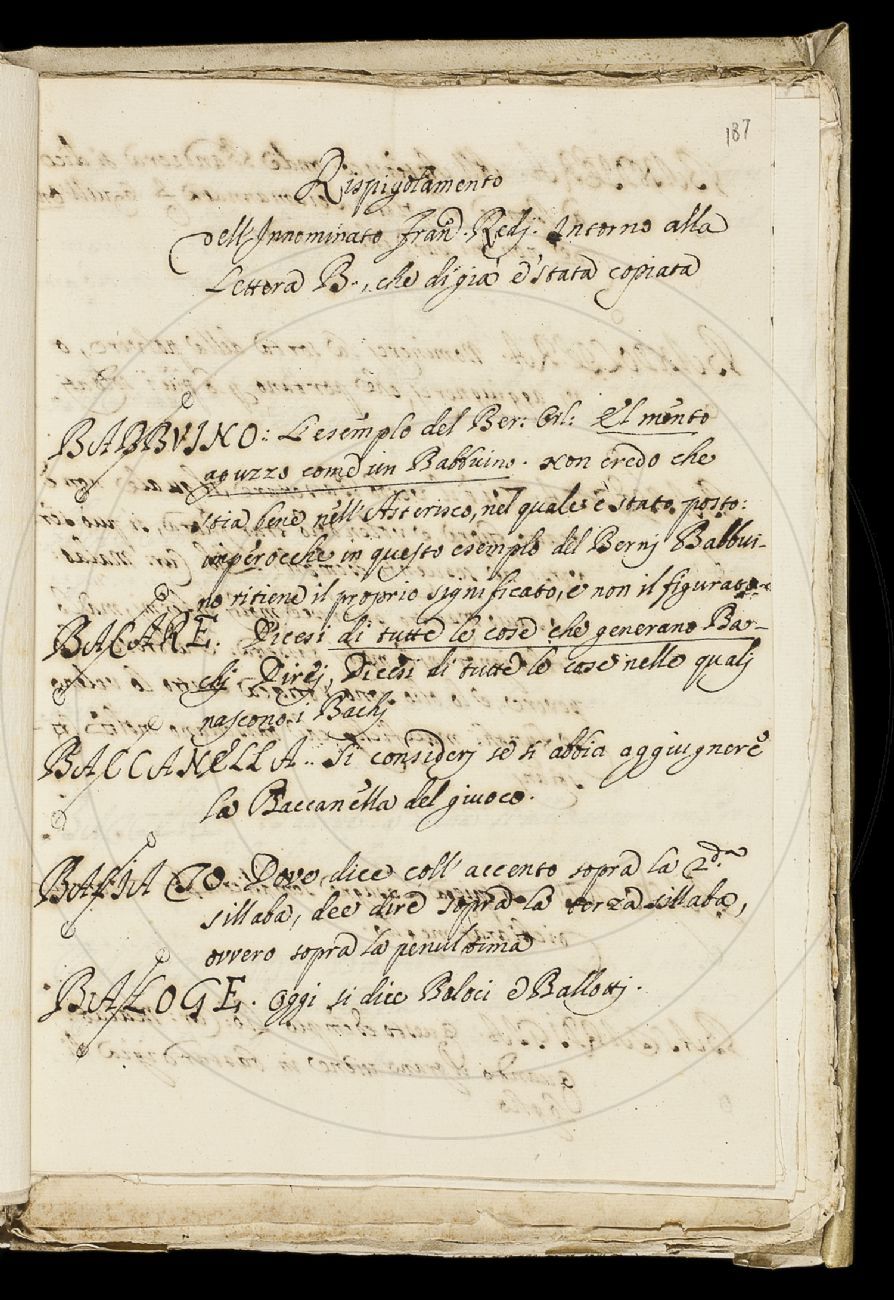 187
Rispigolamento
dell'Innominato Franc. Redj. Intorno alla
Lettera B., che di già è stata copiata
BABBVINO: L'esemplo del Ber: Orl: El mento
aguzzo come un Babbuino. Non credo che
stia bene nell'Asterisco, nel quale è stato posto:
imperocche in questo esemplo del Bernj Babbui-
no ritiene il proprio significato, e non il figurato.
BACARE: Dicesi di tutte le cose che generano Ba-
chj. Direj, Dicesi di tutte le cose nelle qualj
nascono i Bachj
BACCANELLA.. Si considerj se si abbia aggiugnere
la Baccanella del giuoco.
BALIATO. Dove dice coll'accento sopra la 2da
sillaba, dee dire sopra la terza sillaba,
ovvero sopra la penultima
BALOGE. Oggi si dice Baloci e Ballottj.